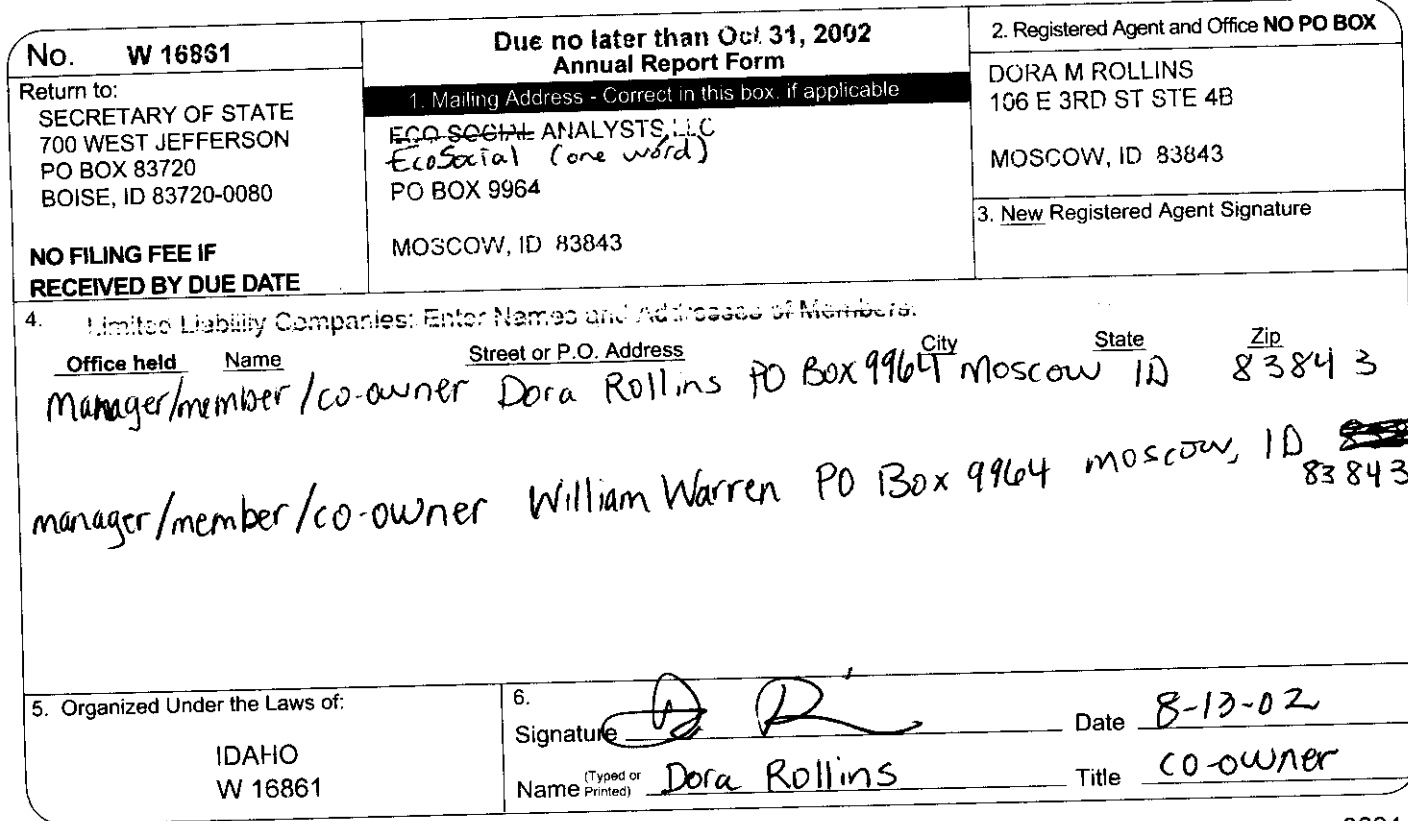 No. W 16861
Return to:
SECRETARY OF STATE
700 WEST JEFFERSON
PO BOX 83720
BOISE, ID 83720-0080
NO FILING FEE IF
RECEIVED BY DUE DATE
Due no later than Oct 31, 2002
Annual Report Form
1. Mailing Address - Correct in this box, if applicable
ECO SOCIAL ANALYSTS, LLC
EcoSocial (one word)
PO BOX 9964
MOSCOW, ID 83843
2. Registered Agent and Office NO PO BOX
DORA M ROLLINS
106 E 3RD ST STE 4B
MOSCOW, ID 83843
3. New Registered Agent Signature
4. Limited Liability Companies: Enter Names and Addresses of Members.
Office held Name Street or P.O. Address City State Zip
Manager/member/co-owner Dora Rollins PO Box 9964 Moscow ID 83843
manager/member/co-owner William Warren PO Box 9964 moscow, ID
83843
5. Organized Under the Laws of:
IDAHO
W 16861
6.
Signature Date 8-13-02
Name (Typed or Printed) Dora Rollins Title co-owner